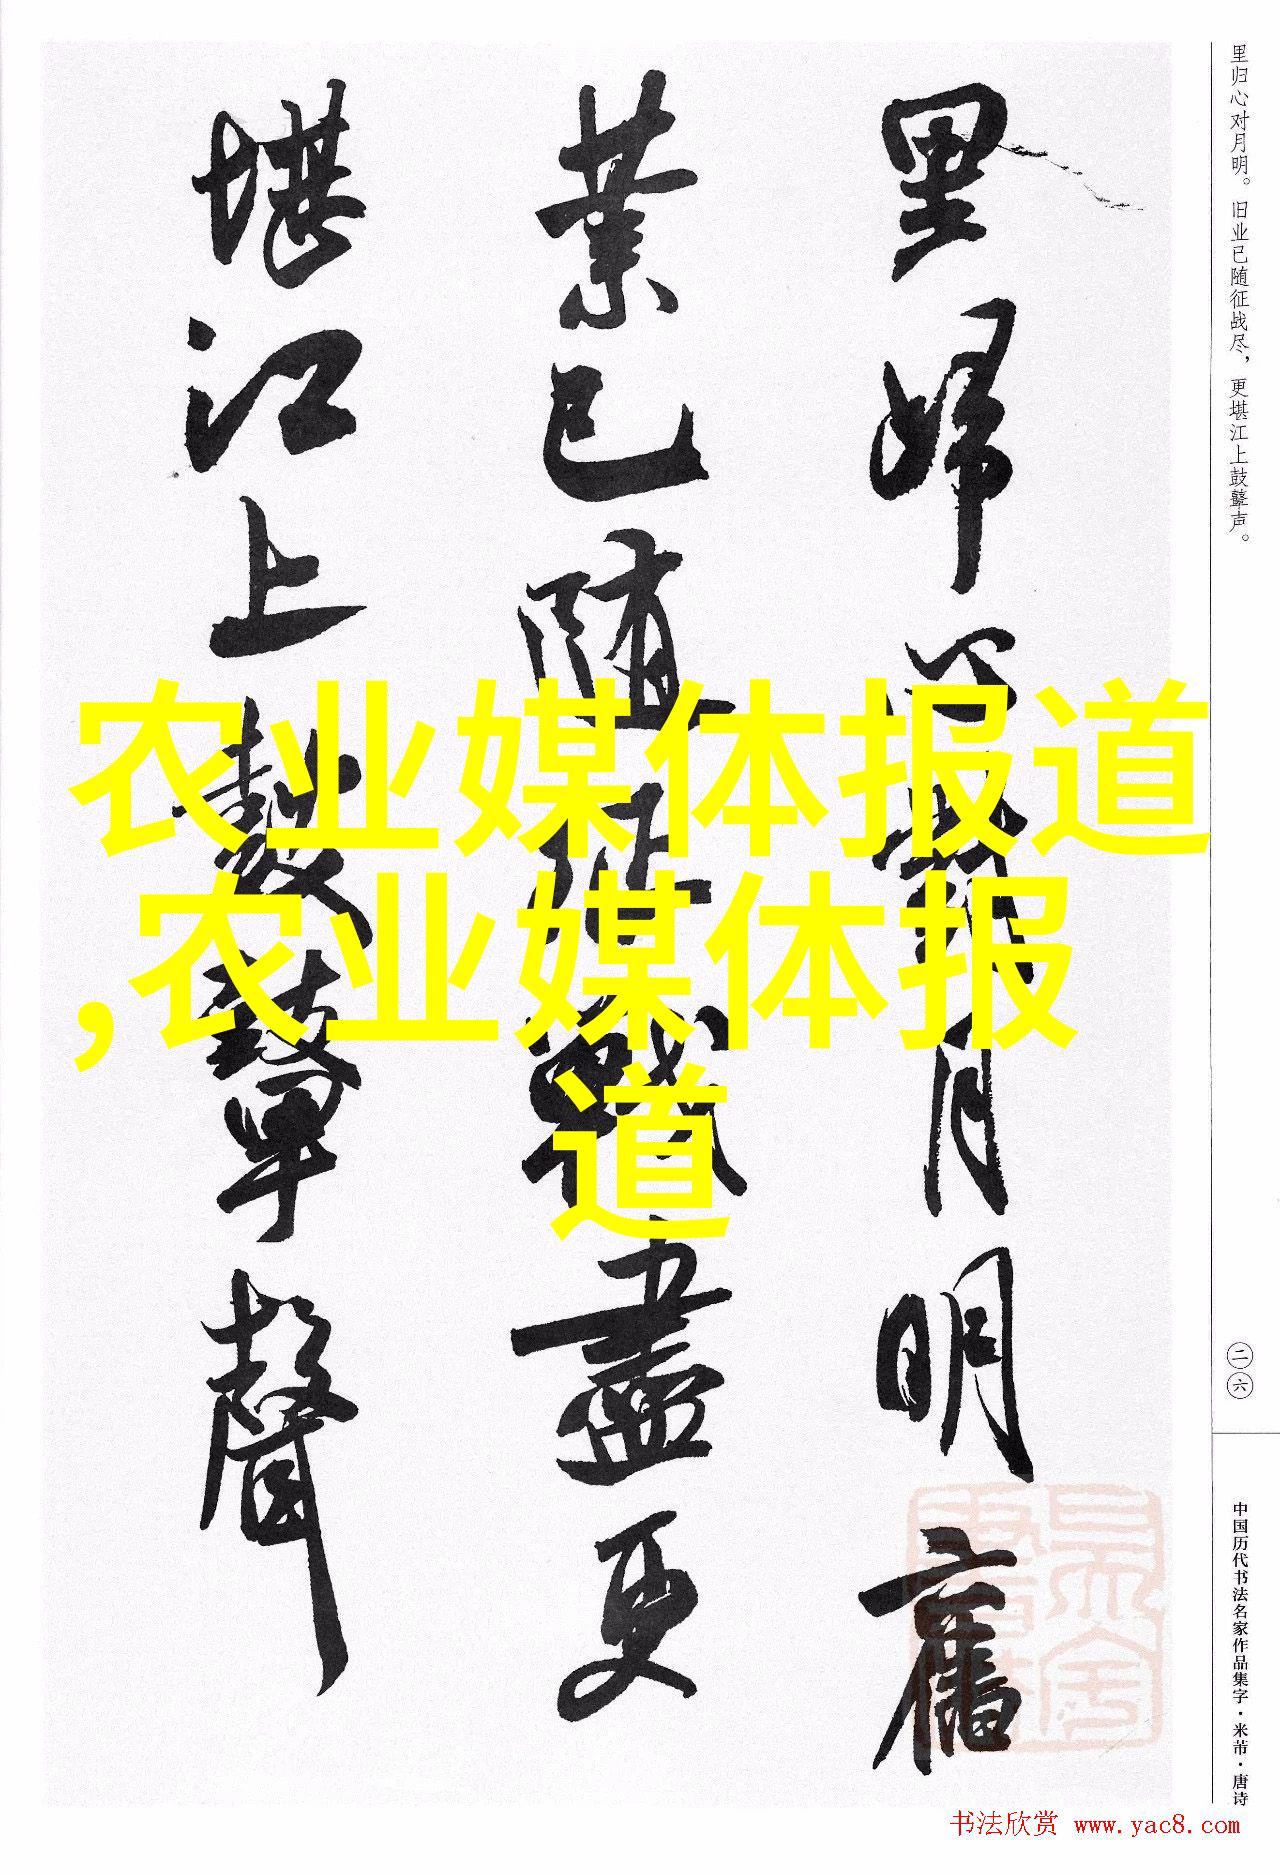 里归心对月明。旧业已随征战尽，更堪江上鼓鼙声。
里歸心對月明舊
業已隨征戰盡更
堪江上鼓鼙聲
农业媒体报道
,农业媒体报
道
二六
中国历代书法名家作品集字·米芾·唐诗
书法欣赏 www.yac8.com